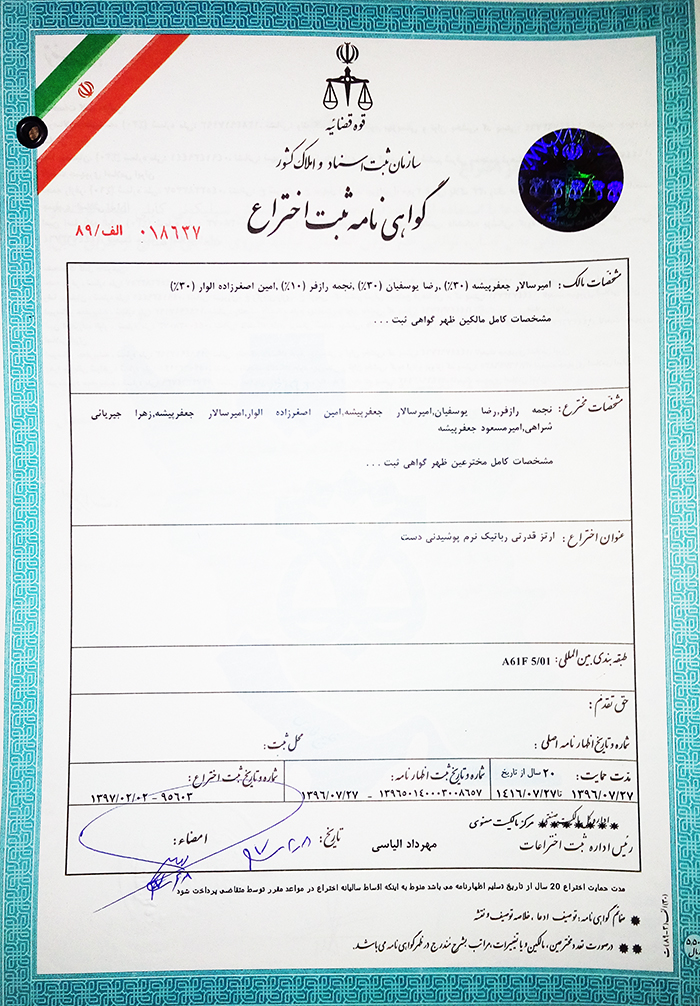 قوه قضائیه
سازمان ثبت اسناد و املاک کشور
گواهی نامه ثبت اختراع
۰۱۸۶۳۷ الف/۸۹
مشخصات مالک: امیرسالار جعفرپیشه (۳۰٪) ,رضا یوسفیان (۳۰٪) ,نجمه رازفر (۱۰٪) ,امین اصغرزاده الوار (۳۰٪)
مشخصات کامل مالکین ظهر گواهی ثبت . . .
مشخصات مخترع: نجمه رازفر,رضا یوسفیان,امیرسالار جعفرپیشه,امین اصغرزاده الوار,امیرسالار جعفرپیشه,زهرا جیریائی
شراهی,امیرمسعود جعفرپیشه
مشخصات کامل مخترعین ظهر گواهی ثبت . . .
عنوان اختراع : ارتز قدرتی رباتیک نرم پوشیدنی دست
طبقه بندی بین المللی: A61F 5/01
حق تقدم :
شماره و تاریخ اظهار نامه اصلی : محل ثبت :
مدت حمایت: ۲۰ سال از تاریخ شماره و تاریخ ثبت اظهار نامه: شماره و تاریخ ثبت اختراع :
۱۳۹۶/۰۷/۲۷ تا ۱۴۱۶/۰۷/۲۷ ۱۳۹۶۵۰۱۴۰۰۰۳۰۰۸۶۵۷ - ۱۳۹۶/۰۷/۲۷ ۹۵۶۰۳ - ۱۳۹۷/۰۲/۰۲
مرکز مالکیت معنوی
رئیس اداره ثبت اختراعات مهرداد الیاسی تاریخ: امضاء:
مدت حمایت اختراع 20 سال از تاریخ تسلیم اظهارنامه می باشد منوط به اینکه اقساط سالیانه اختراع در مواعد مقرر توسط متقاضی پرداخت شود
ضمائم گواهی نامه: توصیف ادعا، خلاصه توصیف و نقشه
درصورت تعدد مخترعین، مالکین و یا تغییرات، مراتب بشرح مندرج در ظهر گواهی نامه می باشد.